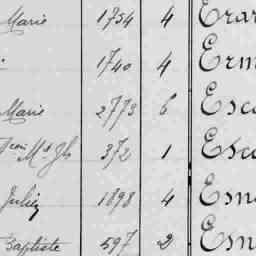 Marie 1754 4 Erar
1740 4 Erm
Marie 2773 6 Esca
Jean Ms Jh 372 1 Esca
Julien 1898 4 Esm
Baptiste 597 2 Esm